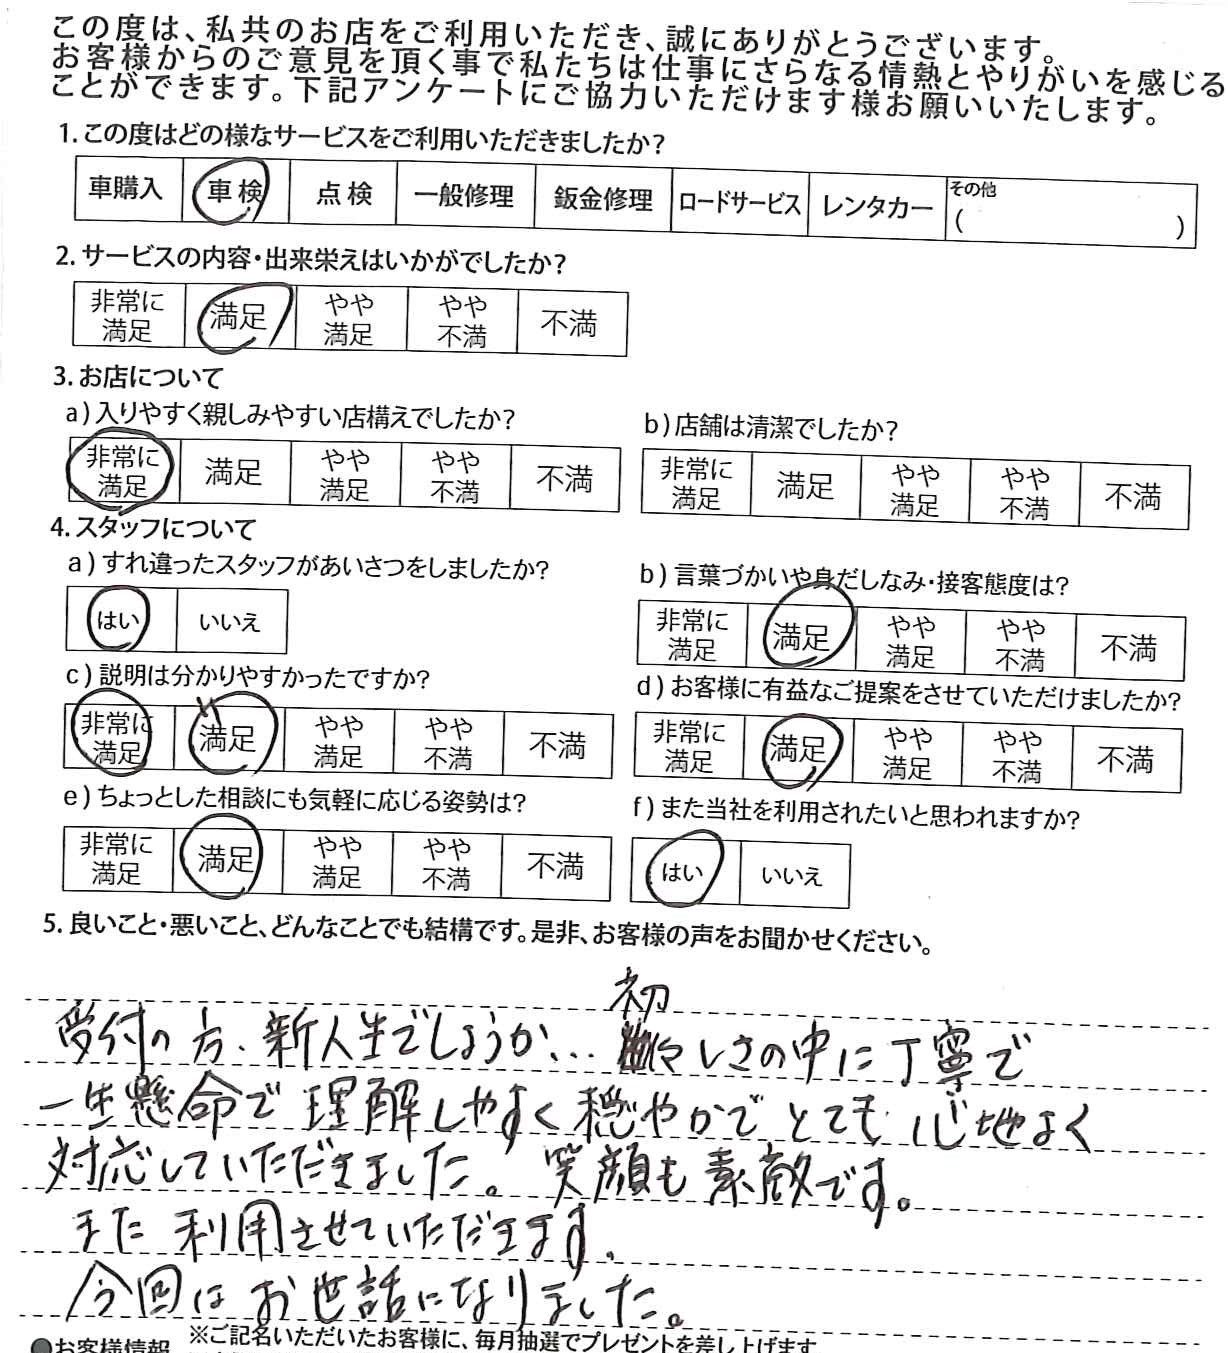 この度は、私共のお店をご利用いただき、誠にありがとうございます。
お客様からのご意見を頂く事で私たちは仕事にさらなる情熱とやりがいを感じる
ことができます。下記アンケートにご協力いただけます様お願いいたします。
1. この度はどの様なサービスをご利用いただきましたか?
車購入 車検 点検 一般修理 鈑金修理 ロードサービス レンタカー その他 ( )
2. サービスの内容・出来栄えはいかがでしたか?
非常に満足 満足 やや満足 やや不満 不満
3. お店について
a) 入りやすく親しみやすい店構えでしたか?
非常に満足 満足 やや満足 やや不満 不満
b) 店舗は清潔でしたか?
非常に満足 満足 やや満足 やや不満 不満
4. スタッフについて
a) すれ違ったスタッフがあいさつをしましたか?
はい いいえ
b) 言葉づかいや身だしなみ・接客態度は?
非常に満足 満足 やや満足 やや不満 不満
c) 説明は分かりやすかったですか?
非常に満足 満足 やや満足 やや不満 不満
d) お客様に有益なご提案をさせていただけましたか?
非常に満足 満足 やや満足 やや不満 不満
e) ちょっとした相談にも気軽に応じる姿勢は?
非常に満足 満足 やや満足 やや不満 不満
f) また当社を利用されたいと思われますか?
はい いいえ
5. 良いこと・悪いこと、どんなことでも結構です。是非、お客様の声をお聞かせください。
受付の方、新人生でしょうか… 初々しさの中に丁寧で
一生懸命で理解しやすく穏やかでとても心地よく
対応していただきました。笑顔も素敵です。
また利用させていただきます。
今回はお世話になりました。
●お客様情報 ※ご記名いただいたお客様に、毎月抽選でプレゼントを差し上げます